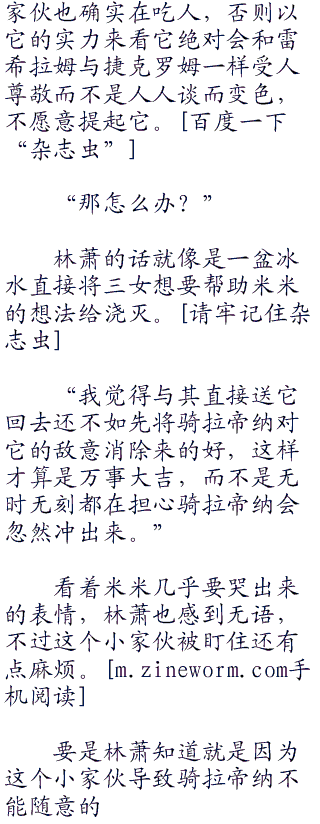 家伙也确实在吃人，否则以
它的实力来看它绝对会和雷
希拉姆与捷克罗姆一样受人
尊敬而不是人人谈而变色，
不愿意提起它。[百度一下
“杂志虫”]
“那怎么办？”
林萧的话就像是一盆冰
水直接将三女想要帮助米米
的想法给浇灭。[请牢记住杂
志虫]
“我觉得与其直接送它
回去还不如先将骑拉帝纳对
它的敌意消除来的好，这样
才算是万事大吉，而不是无
时无刻都在担心骑拉帝纳会
忽然冲出来。”
看着米米几乎要哭出来
的表情，林萧也感到无语，
不过这个小家伙被盯住还有
点麻烦。[m.zineworm.com手
机阅读]
要是林萧知道就是因为
这个小家伙导致骑拉帝纳不
能随意的